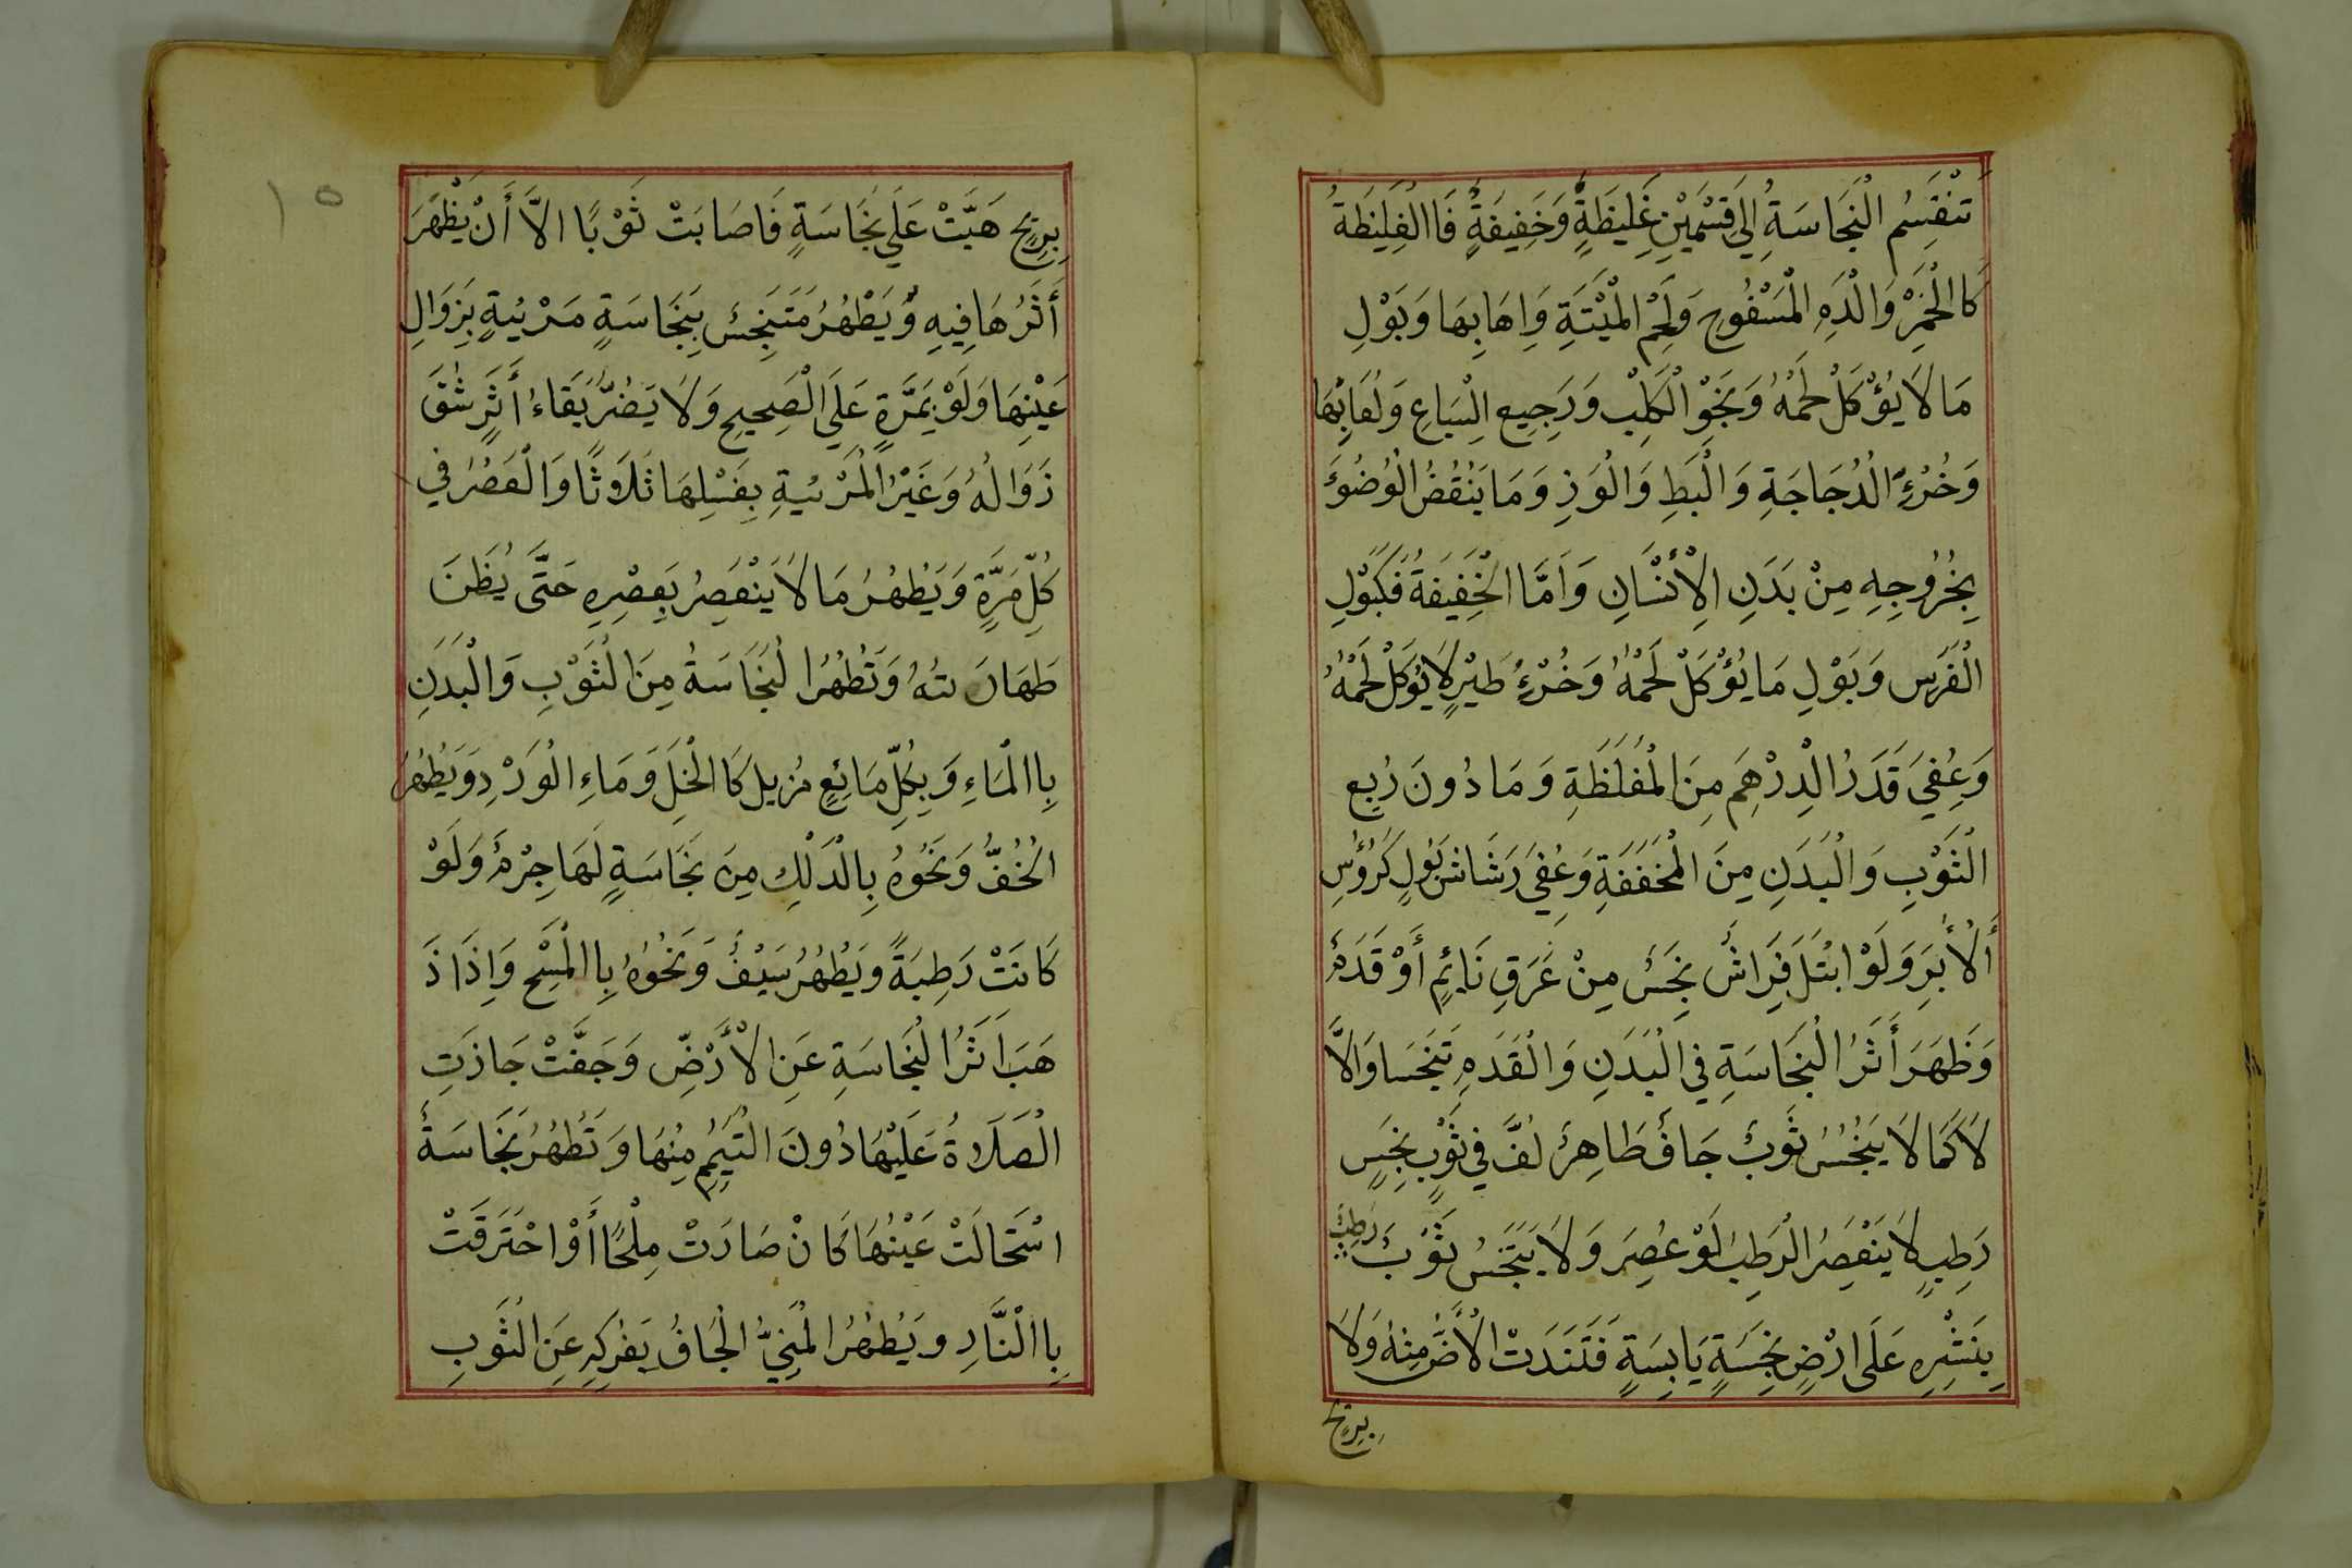 تَنْقَسِمُ النَّجَاسَةُ اِلَي قِسْمَيْنِ غَلِيظَةٍ وَخَفِيفَةٍ فَاالْغَلِيظَةُ
كَاالْخَمْرِ وَالْدَمِ الْمَسْفُوحِ وَلَحْمِ الْمَيْتَةِ وَاِهَابِهَا وَبَوْلِ
مَا لَا يُؤْكَلْ لَحْمُهُ وَنَجْوِ الْكَلْبِ وَرَجِيعِ الْسِبَاعِ وَلُعَابِهَا
وَخُرْءِ الْدُجَاجَةِ وَالْبَطِ وَالْوَزِ وَمَا يَنْقُضُ الْوُضُؤَ
بِخُرُوجِهِ مِنْ بَدَنِ الْأِنْسَانِ وَاَمَّا الْخَفِيفَةُ فَكَبَوْلِ
الْفَرَسِ وَبَوْلِ مَا يُؤْكَلْ لَحْمُهُ وَخُرْءُ طَيْرٍ لَا يُؤكَلْ لَحْمُهُ
وَعُفِيَ قَدَرُ الْدِرْهَمِ مِنَ الْمُغَلَظَةِ وَمَا دُونَ رُبِعِ
الْثَوْبِ وَالْبَدَنِ مِنَ الْمُخَفَفَةِ وَعُفِيَ رَشَاشُ بَوْلٍ كَرُؤُسِ
أَلْأِبَرِ وَلَوْ ابْتَلَ فِرَاشٌ نَجِسٌ مِنْ عَرَقِ نَائِمٍ أَوْ قَدَمٍ
وَظَهَرَ أَثَرُ الْنَجَاسَةِ فِي الْبَدَنِ وَالْقَدَمِ تَنَجَسَا وَاِلاَّ
لَا كَمَا لَا يَنْجُسُ ثَوبٌ جَافٌ طَاهِرٌ لُفَّ فِي ثَوْبٍ نَجِسٍ
رَطِبٍ لَا يَنْعَصِرُ الْرَطِبُ لَوْ عُصِرَ وَلَا يَتَنَجَسُ ثَوْبٌ رَطِبٌ
بِنَشْرِهِ عَلَى ارْضٍ نَجِسَةٍ يَابِسَةٍ فَتَنَدَتْ الْأَرْضُ مِنْهُ وَلَا
بِرِيحٍ
١٥
بِرِيحٍ هَبَّتْ عَلَي نَجَاسَةٍ فَاصَابَتْ ثَوْبًا اِلاَّ أَنْ يَظْهَرَ
أَثَرُهَا فِيهِ وَيَطْهُرُ مَتَنَجِسٌ بِنَجَاسَةٍ مَرْئيةٍ بِزَوَالِ
عَيْنِهَا وَلَوْ بِمَرَّةٍ عَلَي الْصَحِيحِ وَلَا يَضُرُّ بَقَاءُ أَثَرٍ شَقَ
زَوَالُهُ وَغَيْرُ الْمَرْئيةِ بِغَسْلِهَا ثَلَاثًا وَالْعَصْرُ فِي
كُلِّ مَرَّةٍ وَيَطْهُرُ مَا لَا يَنْعَصِرُ بِعَصْرِهِ حَتَّى يُظَنَ
طَهَارَتُهُ وَتَطْهُرُ الْنَجَاسَةُ مِنَ الْثَوْبِ وَالْبَدَنِ
بِاالْمَاءِ وَبِكُلِّ مَائِعٍ مُزيل كَاالْخَلِ وَمَاءِ الْوَرْدِ وَيَطْهُرُ
الْخُفُّ وَنَحْوُهُ بِالْدَلْكِ مِنَ نَجَاسَةٍ لَهَا جِرْمٌ وَلَوْ
كَانَتْ رَطِبَةً وَيَطْهُرُ سَيْفٌ وَنَحْوُهُ بِاالْمَسْحِ وَاِذَا ذَ
هَبَ اَثَرُ الْنَجَاسَةِ عَنِ الْأَرْضِ وَجَفَّتْ جَازَتِ
الْصَلَاةُ عَلَيْهَا دُونَ الْتَيَمُمِ مِنْهَا وَتَطْهُرُ نَجَاسَةٌ
اسْتَحَالَتْ عَيْنُهَا كَانْ صَارَتْ مِلْحًا أَوْ احْتَرَقَتْ
بِاالْنَّارِ وَيَطْهُرُ الْمَنِيُّ الْجَافُ بِفَرْكِهِ عَنِ الْثَوْبِ